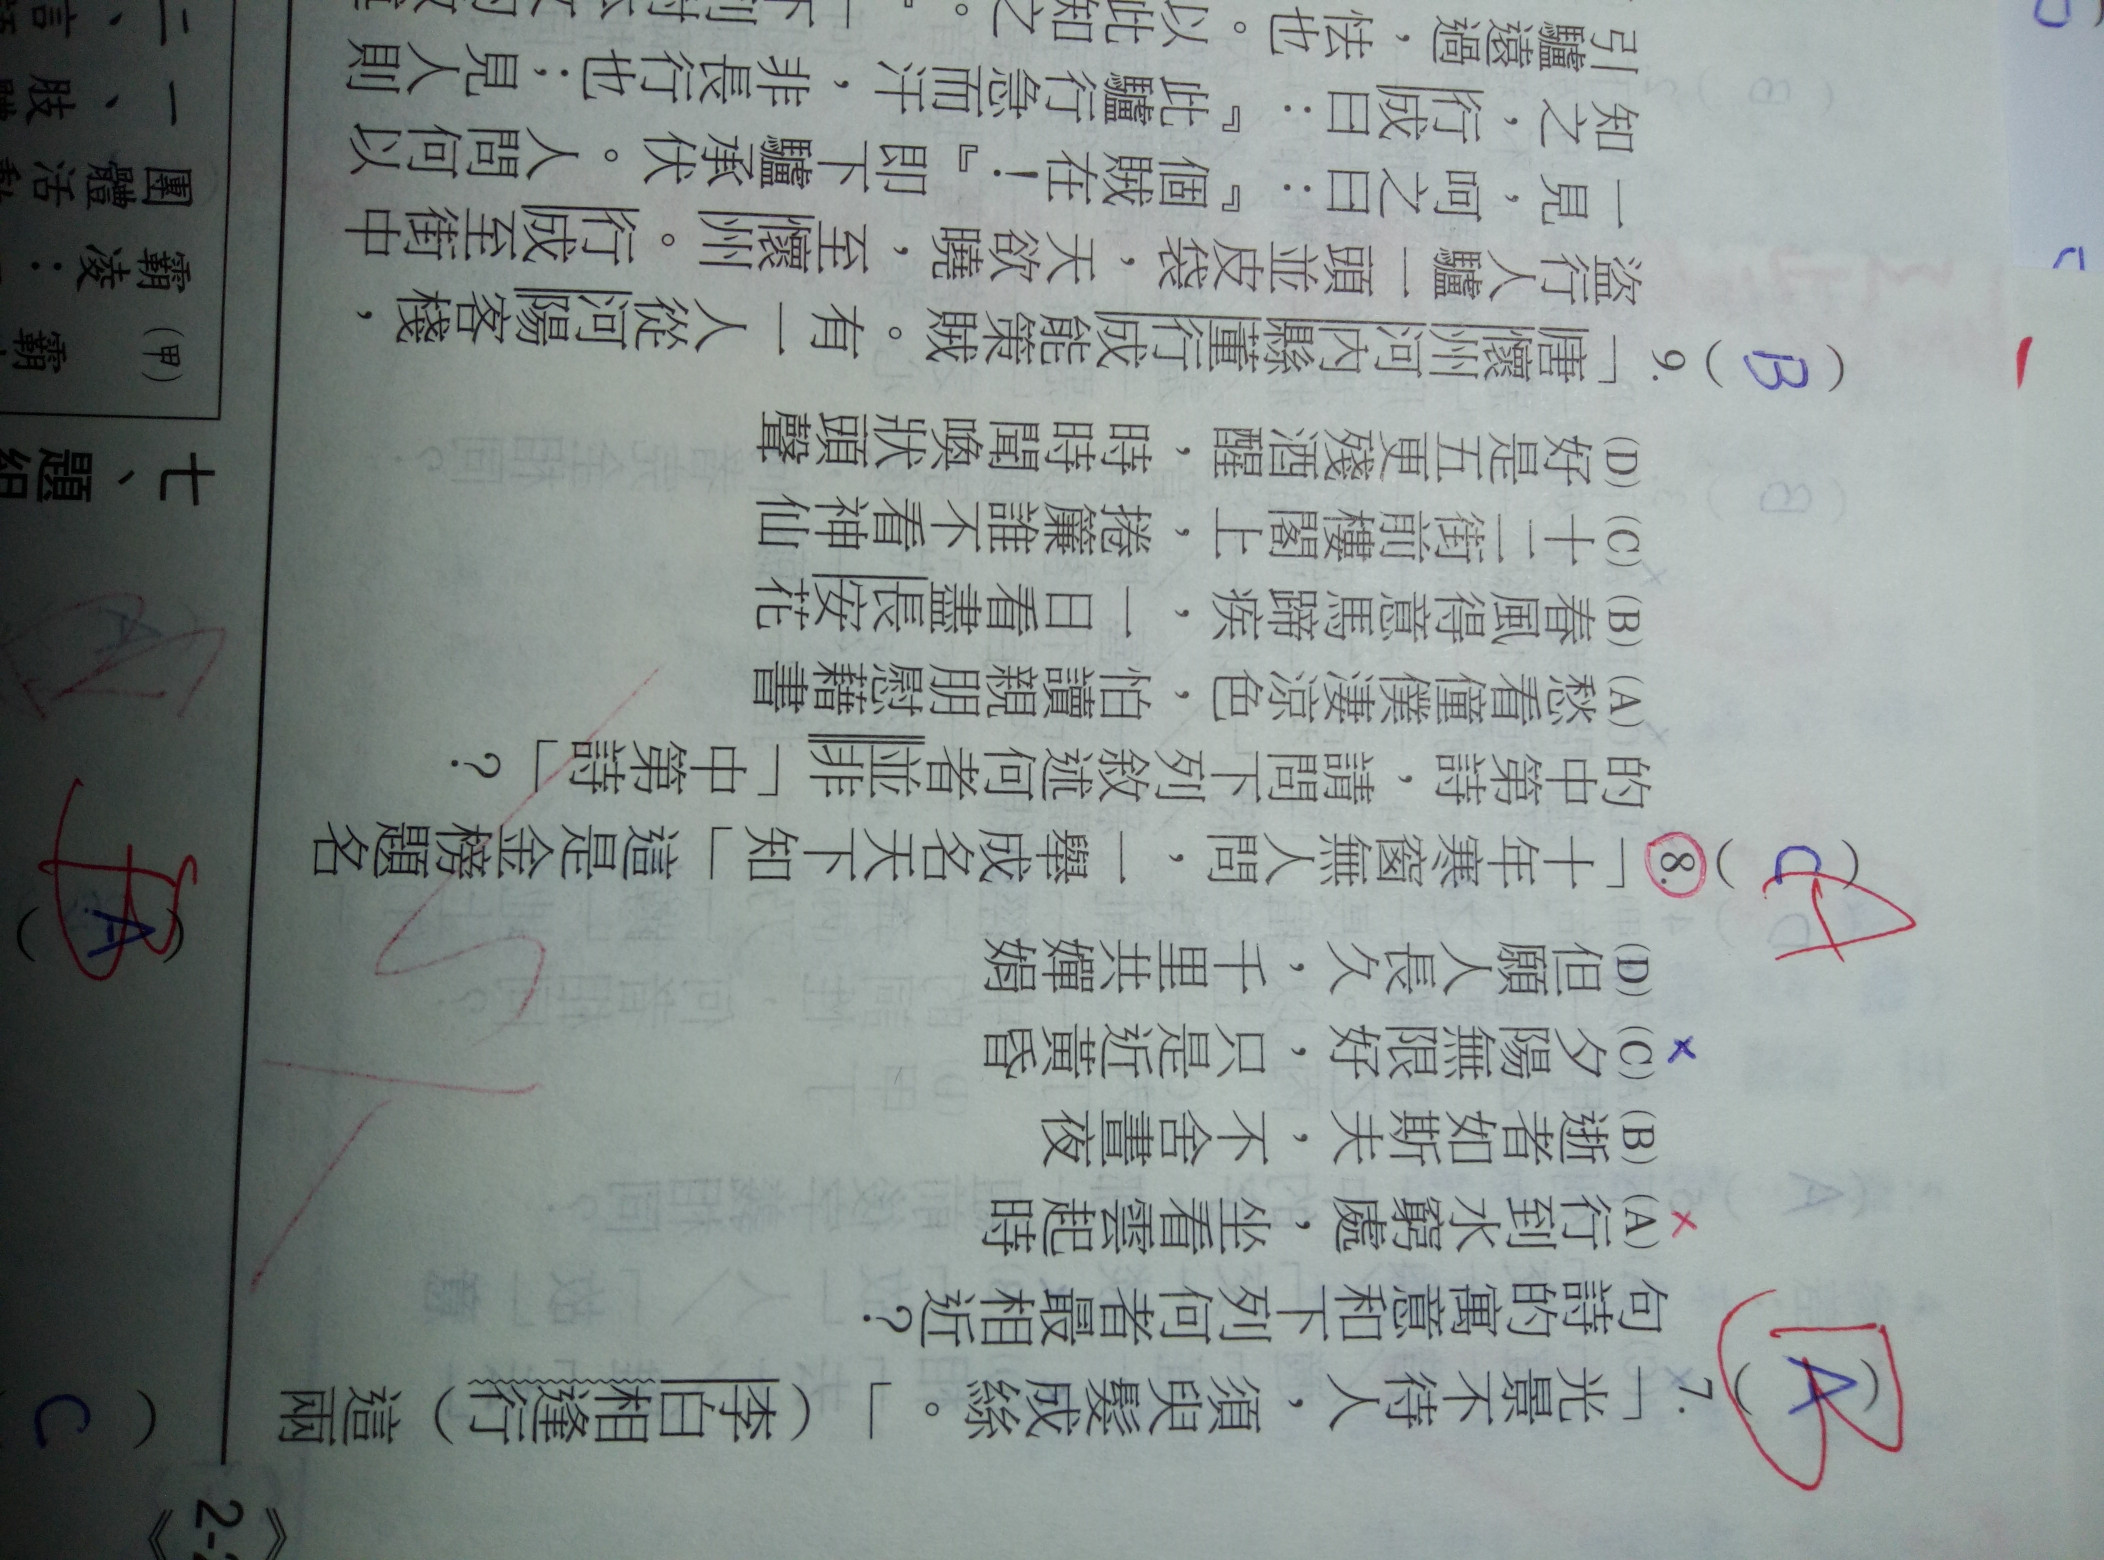 《2-
( B A ) 7.「光景不待人，須臾髮成絲。」（李白相逢行）這兩
句詩的寓意和下列何者最相近？
(A)行到水窮處，坐看雲起時
(B)逝者如斯夫，不舍晝夜
(C)夕陽無限好，只是近黃昏
(D)但願人長久，千里共嬋娟
( C A ) 8.「十年寒窗無人問，一舉成名天下知」這是金榜題名
的中第詩，請問下列敘述何者並非「中第詩」？
(A)愁看僮僕淒涼色，怕讀親朋慰藉書
(B)春風得意馬蹄疾，一日看盡長安花
(C)十二街前樓閣上，捲簾誰不看神仙
(D)好是五更殘酒醒，時時聞喚狀頭聲
( B ) 9.「唐懷州河內縣董行成能策賊。有一人從河陽客棧，
盜行人驢一頭並皮袋，天欲曉，至懷州。行成至街中
一見，呵之曰：『個賊在！』即下驢承伏。人問何以
知之，行成曰：『此驢行急而汗，非長行也；見人則
引驢遠過，怯也。以此知之。』
C
A
七、題組
(甲)
霸凌：
團體活
一、肢
二、言